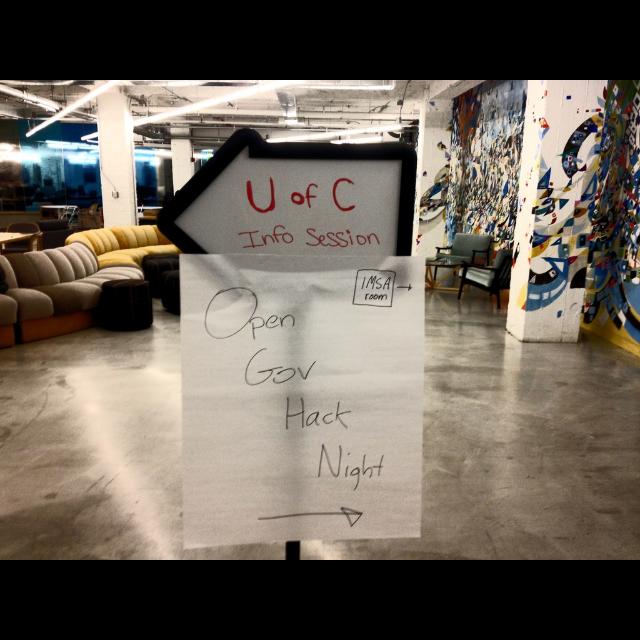 U of C
Info Session
IMSA →
room
Open
Gov
Hack
Night
→